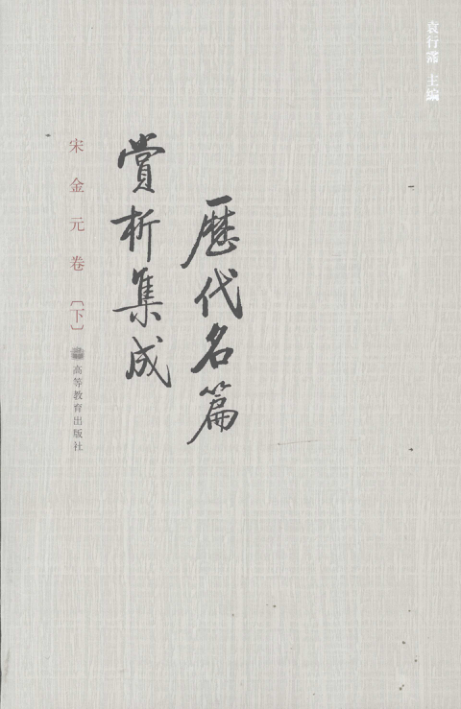 袁行霈 主编
歷代名篇
賞析集成
宋金元卷〔下〕
高等教育出版社